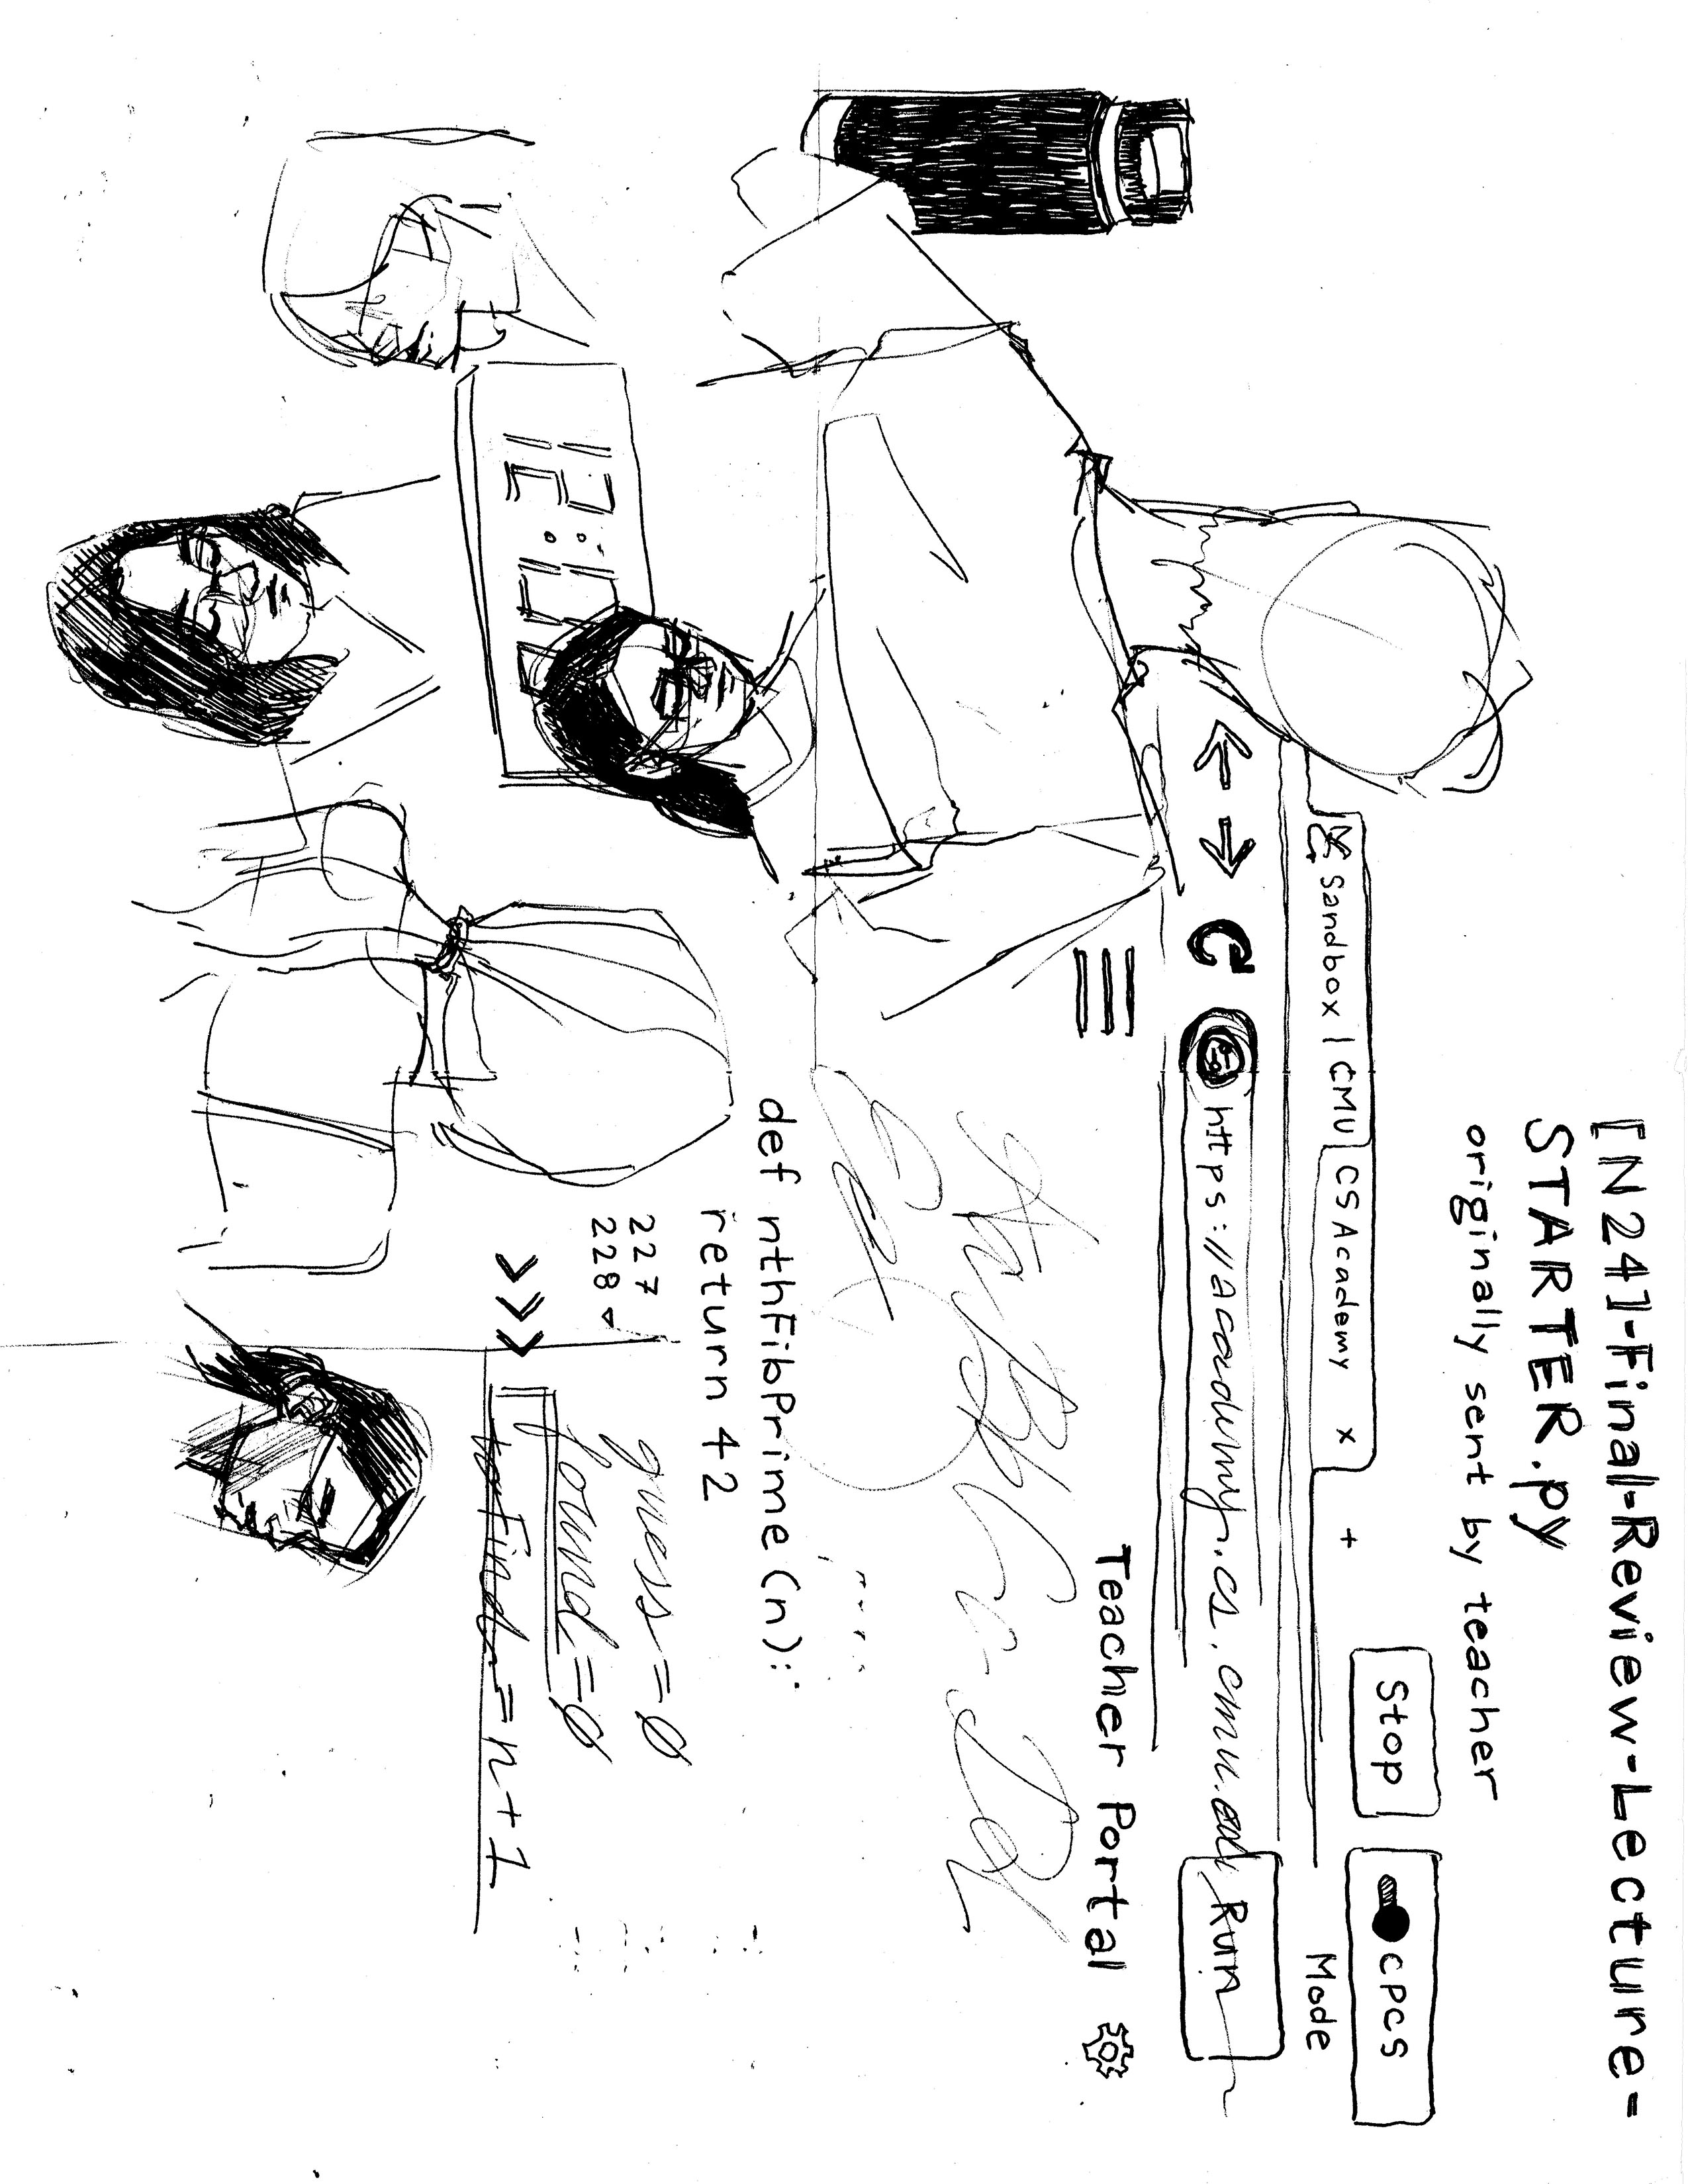 [N24]-Final-Review-Lecture-
STARTER.py
originally sent by teacher
Stop
CPCS
Mode
Sandbox | CMU CS Academy x +
https://academy.cs.cmu.edu
Run
Teacher Portal
def nthFibPrime(n):
return 42
227
228
>>>
guess=0
found=0
toFind=n+1
12:00